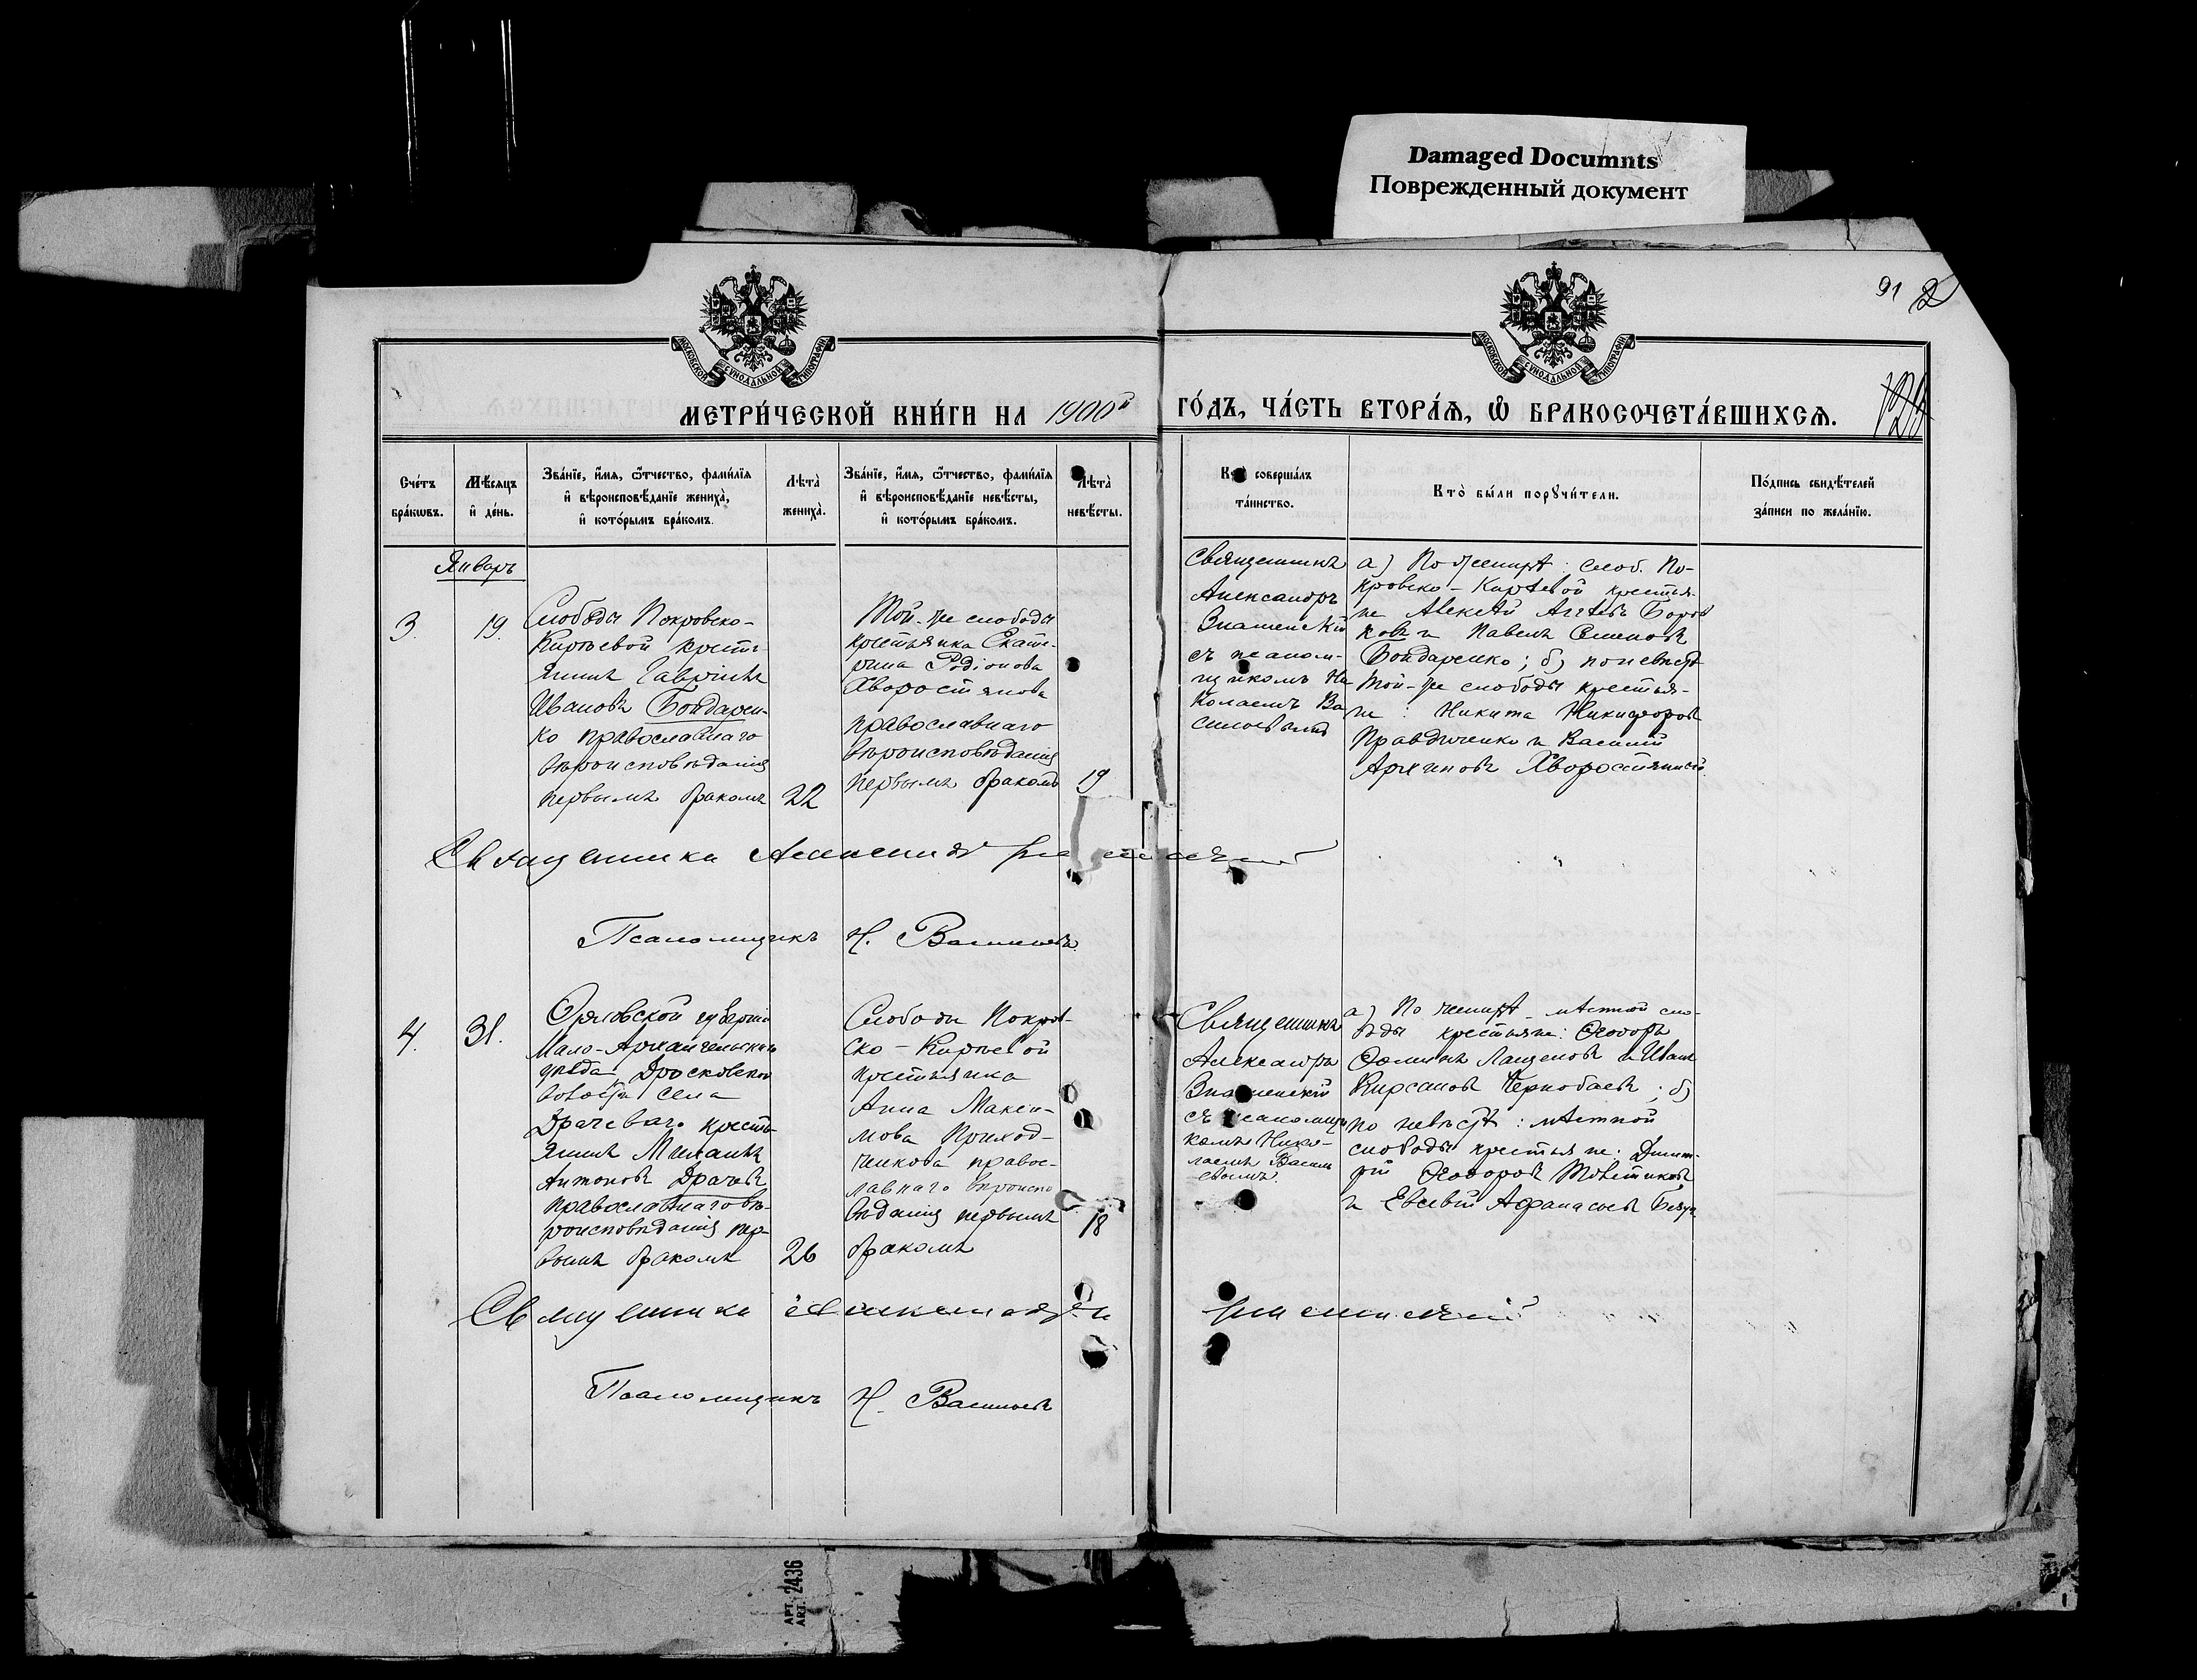 Damaged Documnts
Поврежденный документ
91 2
МОСКОВСКОЙ СѴНОДАЛЬНОЙ ТИПОГРАФІИ
МОСКОВСКОЙ СѴНОДАЛЬНОЙ ТИПОГРАФІИ
МЕТРИ́ЧЕСКОЙ КНИ́ГИ НА 1900й
ГО́ДЪ, ЧА́СТЬ ВТОРА́Ѧ, Ѽ БРАКОСОЧЕТА́ВШИХСѦ.
Сче́тъ бра́кѡвъ.
Мѣ́сяцъ и҆ де́нь.
Зва́нїе, и҆́мя, ѻ҆́тчество, фами́лїя
и҆ вѣроисповѣ́данїе жениха̀,
и҆ кото́рымъ бра́комъ.
Лѣта̀ жениха̀.
Зва́нїе, и҆́мя, ѻ҆́тчество, фами́лїя
и҆ вѣроисповѣ́данїе невѣ́сты,
и҆ кото́рымъ бра́комъ.
Лѣта̀ невѣ́сты.
Кто̀ соверша́лъ
та́инство.
Кто̀ бы́ли порꙋчи́тели.
По́дпись свидѣ́телей
за́писи по жела́нїю.
Январь
3.
19.
Слободы Покровско-
Кирѣевой кресть-
янинъ Гавріилъ
Ивановъ Бондарен-
ко православнаго
вѣроисповѣданія
первымъ бракомъ
22
Той-же слободы
крестьянка Екате-
рина Родіонова
Хворостянова
православнаго
вѣроисповѣданія
первымъ бракомъ
19
Священникъ
Александръ
Знаменскій
съ псалом-
щикомъ Ни
колаемъ Ва
сильевымъ
а) По женихѣ: слоб. По-
кровско-Кирѣевой крестья-
не Алексѣй
и Павелъ Семеновъ
Бондаренко; б) по невѣстѣ
той-же слободы крестья-
не: Никита Никифоровъ
и Василій
Архиповъ
Священникъ Александръ Знаменскій
Псаломщикъ Н. Васильевъ
4.
31.
Орловской губерніи
Мало-Архангельскаго
уѣзда Дросковской
волости села
Драчеваго кресть-
янинъ Михаилъ
Антоновъ Драчевъ
православнаго вѣ-
роисповѣданія пер-
вымъ бракомъ
26
Слободы Покров-
ско-Кирѣевой
крестьянка
Анна Макси-
мова Приход-
ченкова правос-
лавнаго вѣроиспо
вѣданія первымъ
бракомъ
18
Священникъ
Александръ
Знаменскій
съ псаломщи
комъ Нико-
лаемъ Василь
евымъ.
а) По женихѣ мѣстной сло-
боды крестьяне: Ѳеодоръ
Ѳоминъ и Иванъ
Кирсановъ Чернобаевъ; б)
по невѣстѣ: мѣстной
слободы крестьяне: Димит-
рій Ѳеодоровъ
и Евсевій Аѳанасьевъ
Священникъ Александръ Знаменскій
Псаломщикъ Н. Васильевъ
АРТ. 2436
ART.